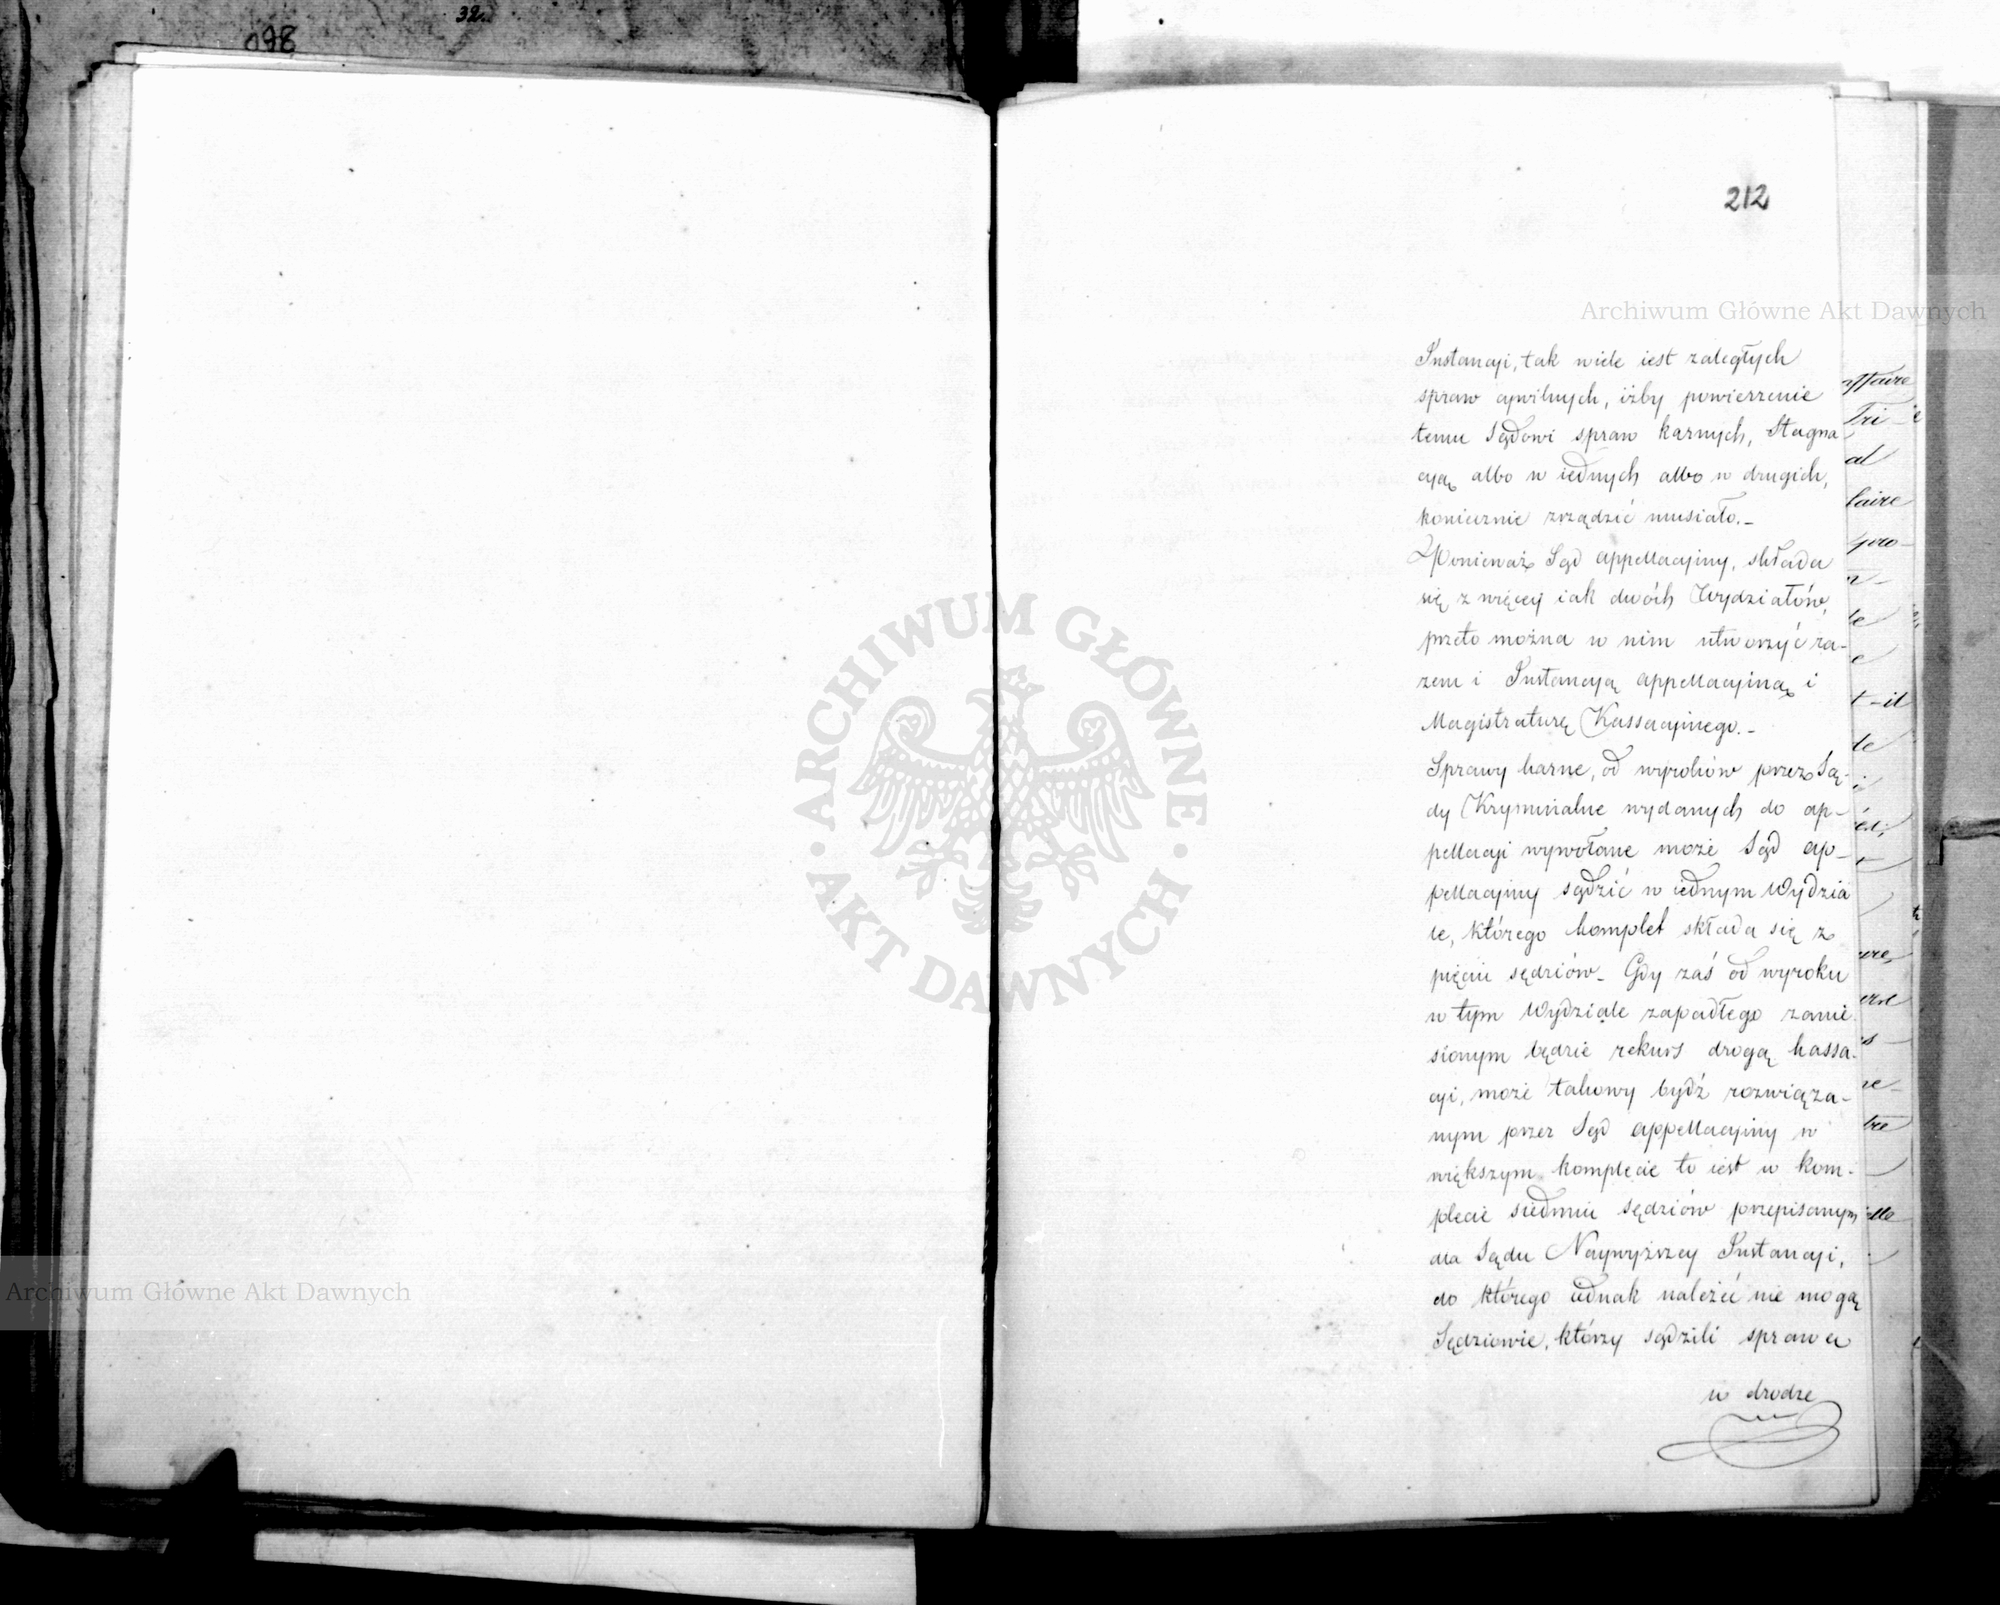 32.
098
212
Archiwum Główne Akt Dawnych
Instancyi, tak wiele iest zaległych
spraw cywilnych, iżby powierzenie
temu Sądowi spraw karnych, Stagna
cyą albo w iednych albo w drugich,
koniecznie zrządzić musiało.-
Ponieważ Sąd appellacyiny, składa
się z więcey iak dwóch Wydziałów,
przeto można w nim utworzyć ra-
zem i Instancyą appellacyiną i
Magistraturę Kassacyinego.-
Sprawy karne, od wyroków przez Są-
dy Kryminalne wydanych do ap-
pellacyi wywołane może Sąd ap-
pellacyiny sądzić w iednym Wydzia
le, którego komplet składa się z
pięciu sędziów- Gdy zaś od wyroku
w tym Wydziale zapadłego zanie
sionym będzie rekurs drogą kassa-
cyi, może takowy bydź rozwiąza-
nym przez Sąd appellacyiny w
większym komplecie to iest w kom-
plecie siedmiu sędziów przepisanym
dla Sądu Naywyższey Instancyi,
do którego iednak należeć nie mogą
Sędziowie, którzy sądzili sprawę
w drodze
ARCHIWUM GŁÓWNE
AKT DAWNYCH
Archiwum Główne Akt Dawnych